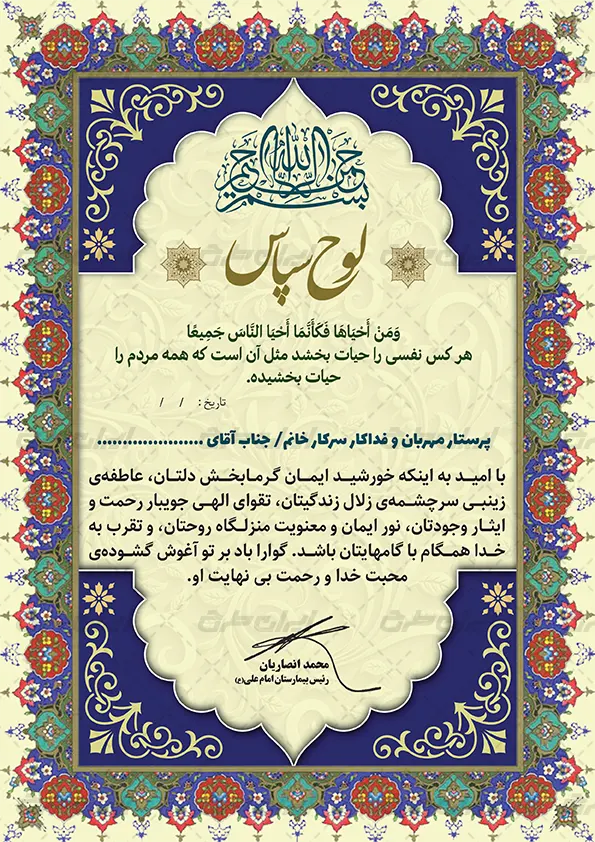 بسم الله الرحمن الرحیم
لوح سپاس
وَمَنْ أَحْیَاهَا فَکَأَنَّمَا أَحْیَا النَّاسَ جَمِیعًا
هر کس نفسی را حیات بخشد مثل آن است که همه مردم را
حیات بخشیده.
تاریخ : / /
پرستار مهربان و فداکار سرکار خانم/ جناب آقای .....................
با امید به اینکه خورشید ایمان گرمابخش دلتان، عاطفه‌ی
زینبی سرچشمه‌ی زلال زندگیتان، تقوای الهی جویبار رحمت و
ایثار وجودتان، نور ایمان و معنویت منزلگاه روحتان، و تقرب به
خدا همگام با گامهایتان باشد. گوارا باد بر تو آغوش گشوده‌ی
محبت خدا و رحمت بی نهایت او.
محمد انصاریان
رئیس بیمارستان امام علی(ع)